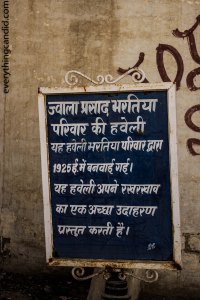 everythingcandid.com
ज्वाला प्रसाद भरतिया
परिवार की हवेली
यह हवेली भरतिया परिवार द्वारा
1925 ई. में बनवाई गई।
यह हवेली अपने रखरखाव
का एक अच्छा उदाहरण
प्रस्तुत करती है।